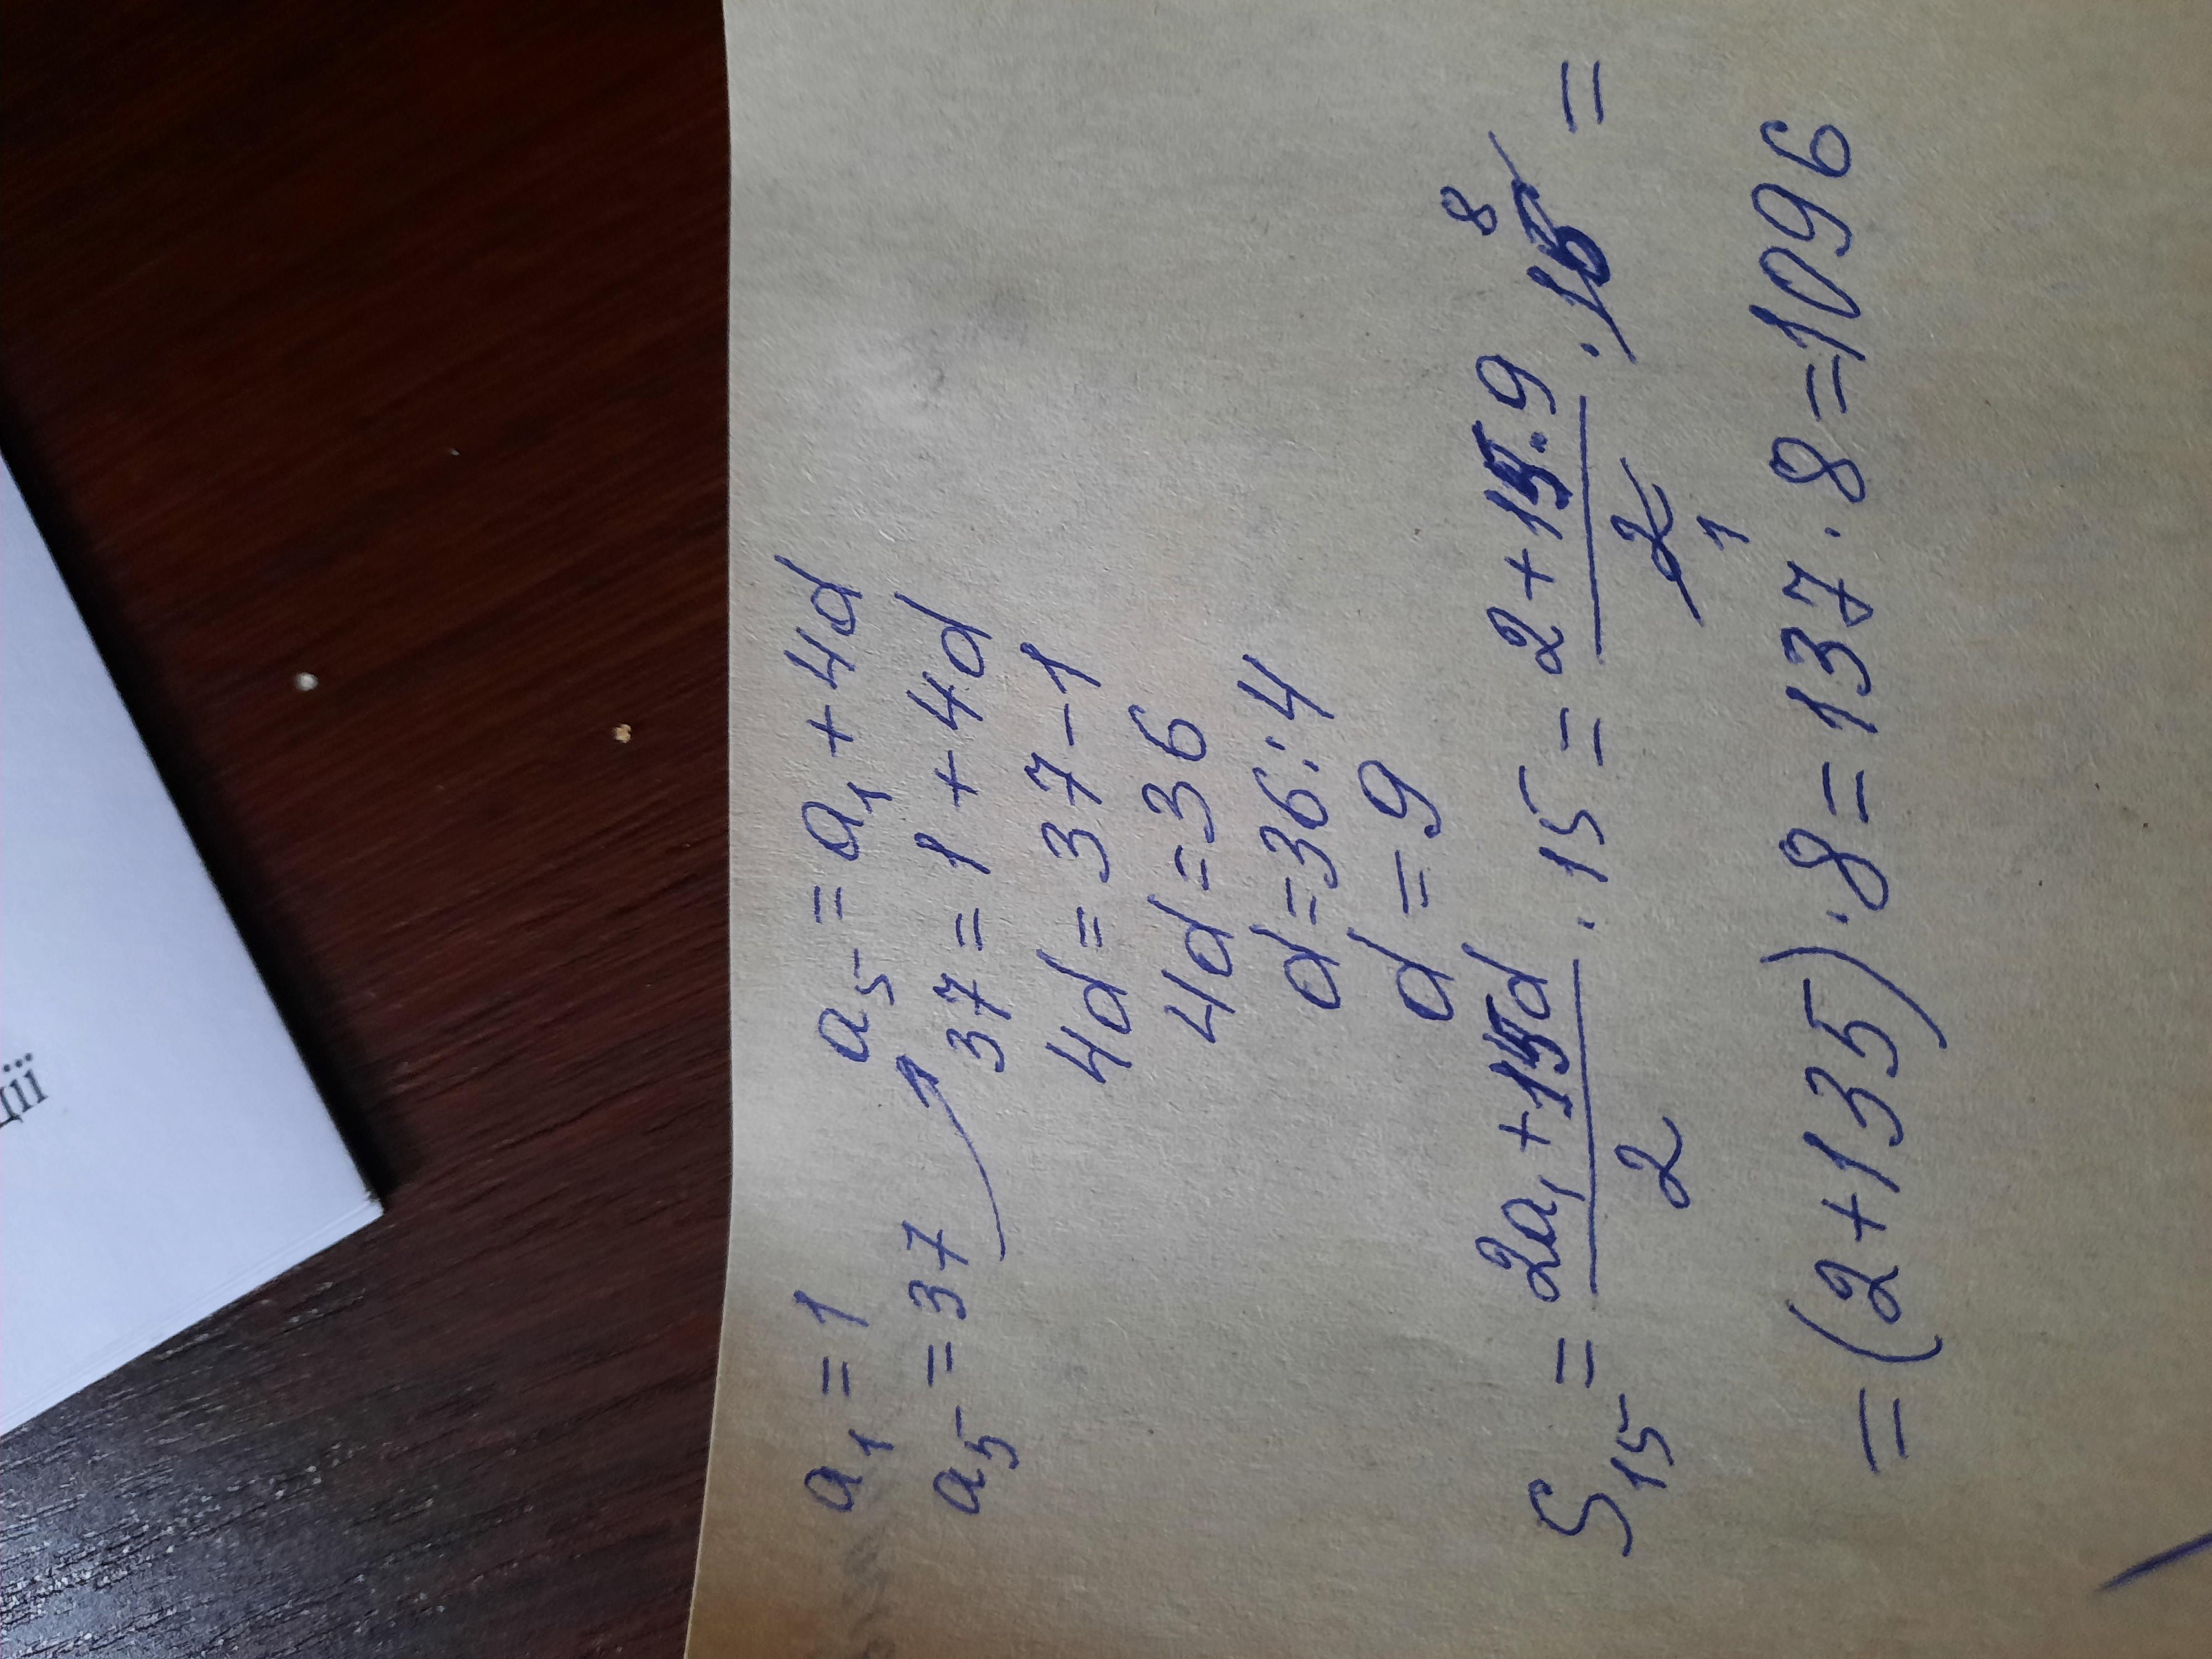 ції
a₁ = 1
a₅ = 37
a₅ = a₁ + 4d
37 = 1 + 4d
4d = 37 - 1
4d = 36
d = 36 : 4
d = 9
S₁₅ = (2a₁ + 15d)/2 · 15 = (2 + 15 · 9)/2 1 · 8 =
= (2 + 135) · 8 = 137 · 8 = 1096